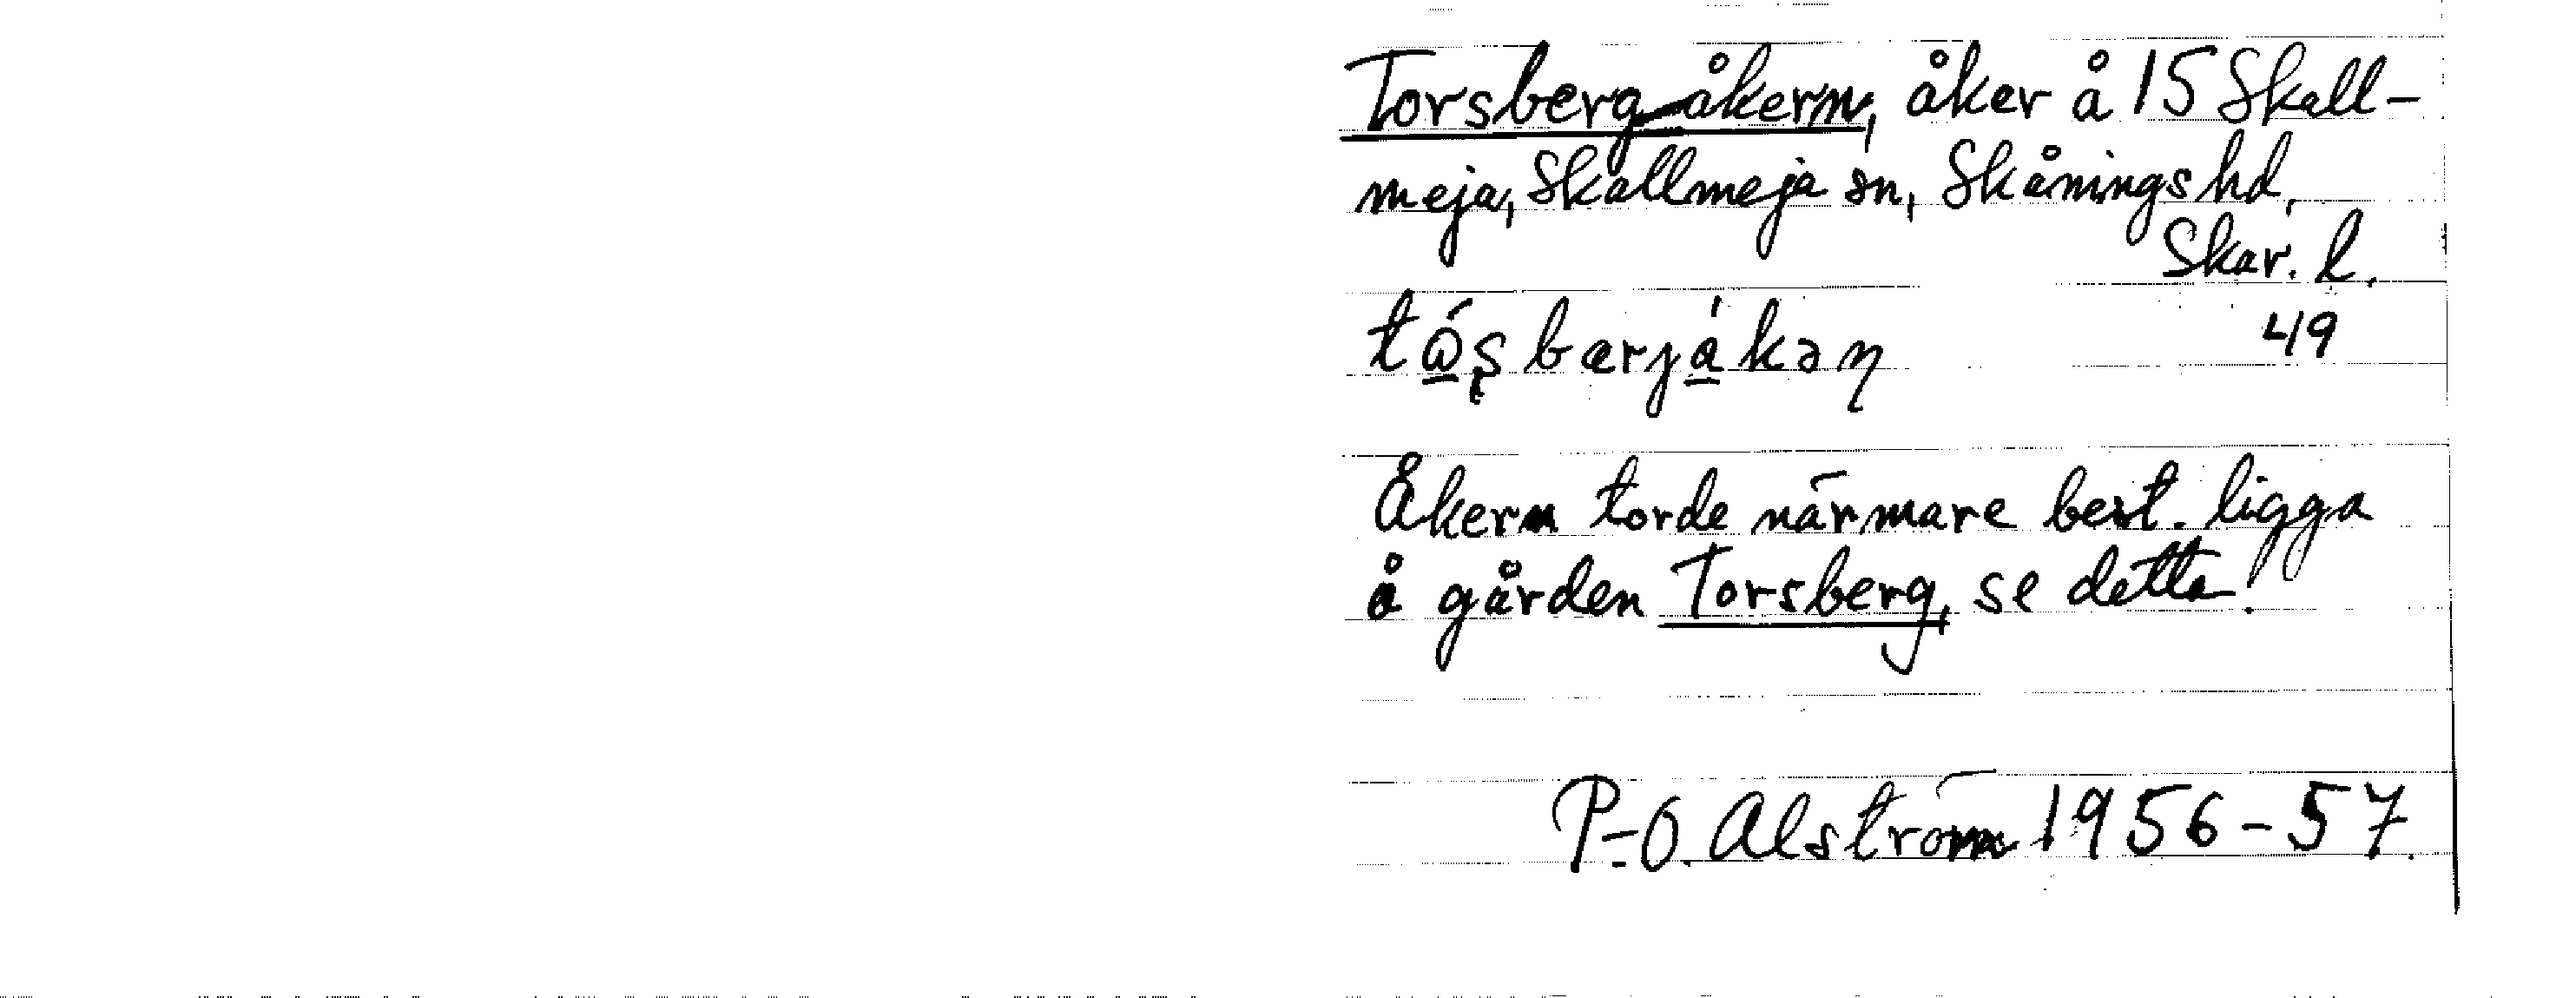 Torsberg-åkern, åker å 15 Skall-
meja, Skallmeja sn, Skånings hd,
Skar. l.
tǻʂbærjåkəɳ 49
Åkern torde närmare best. ligga
å gården Torsberg, se detta!
P-O. Alström 1956-57.